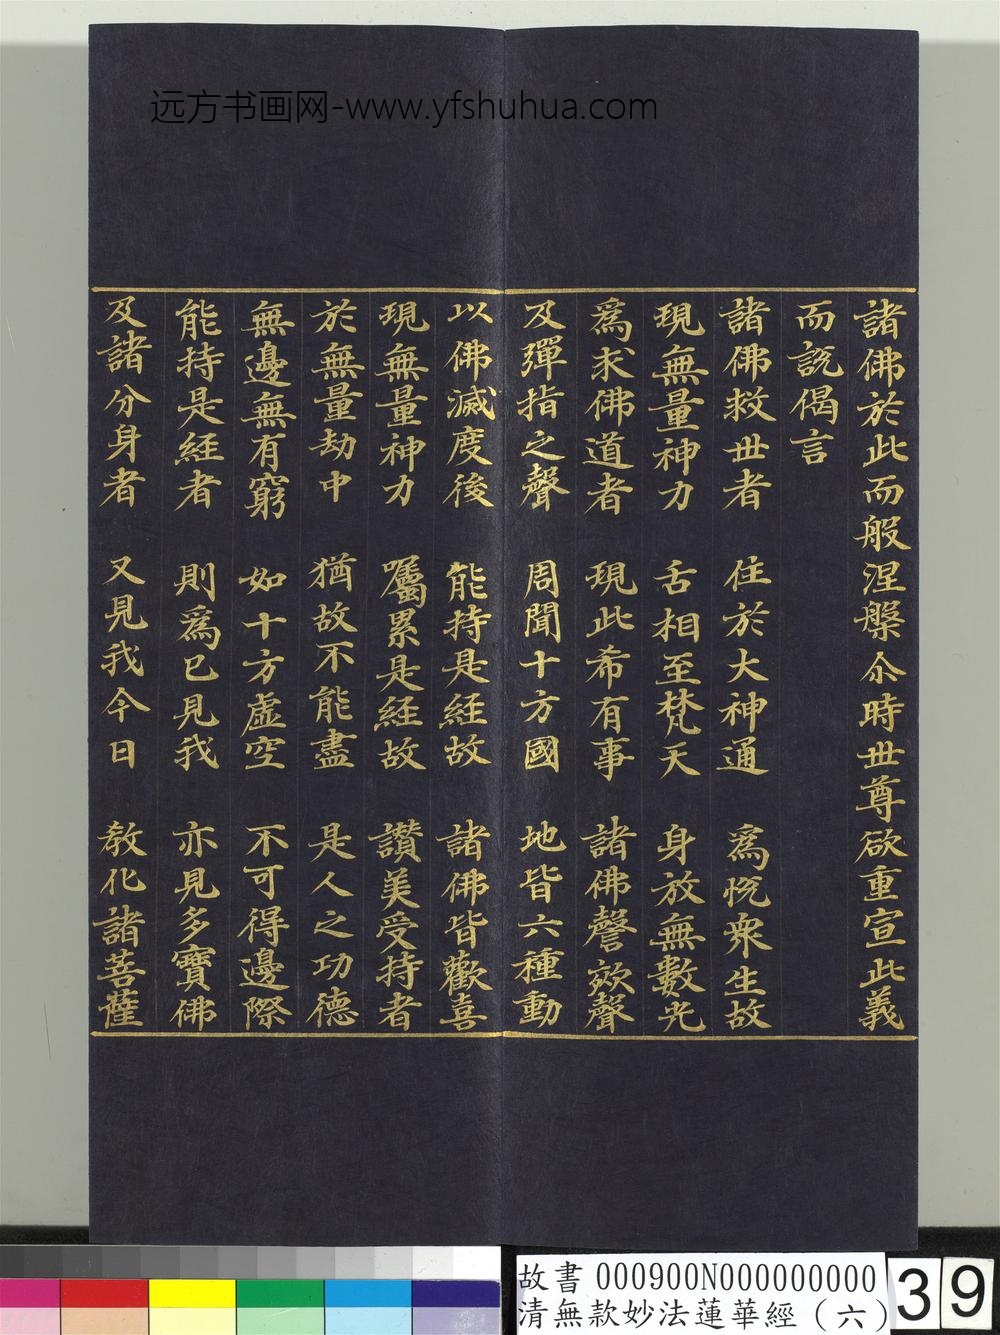 远方书画网-www.yfshuhua.com
諸佛於此而般涅槃尒時世尊欲重宣此義
而說偈言
諸佛救世者　住於大神通　為悅衆生故
現無量神力　舌相至梵天　身放無數光
為求佛道者　現此希有事　諸佛謦欬聲
及彈指之聲　周聞十方國　地皆六種動
以佛滅度後　能持是經故　諸佛皆歡喜
現無量神力　囑累是經故　讚美受持者
於無量劫中　猶故不能盡　是人之功德
無邊無有窮　如十方虛空　不可得邊際
能持是經者　則為已見我　亦見多寶佛
及諸分身者　又見我今日　教化諸菩薩
故書 000900N000000000
清無款妙法蓮華經（六）
39